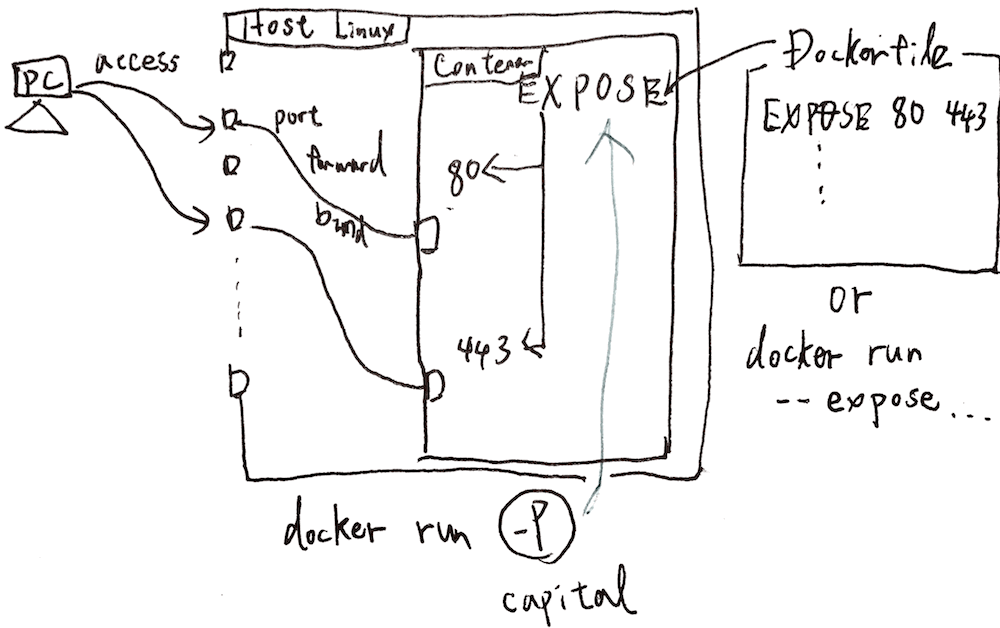 Host Linux
PC
access
port
forward
bind
EXPOSE
80
443
Dockerfile
EXPOSE 80 443
or
docker run
-- expose ...
docker run -P
capital